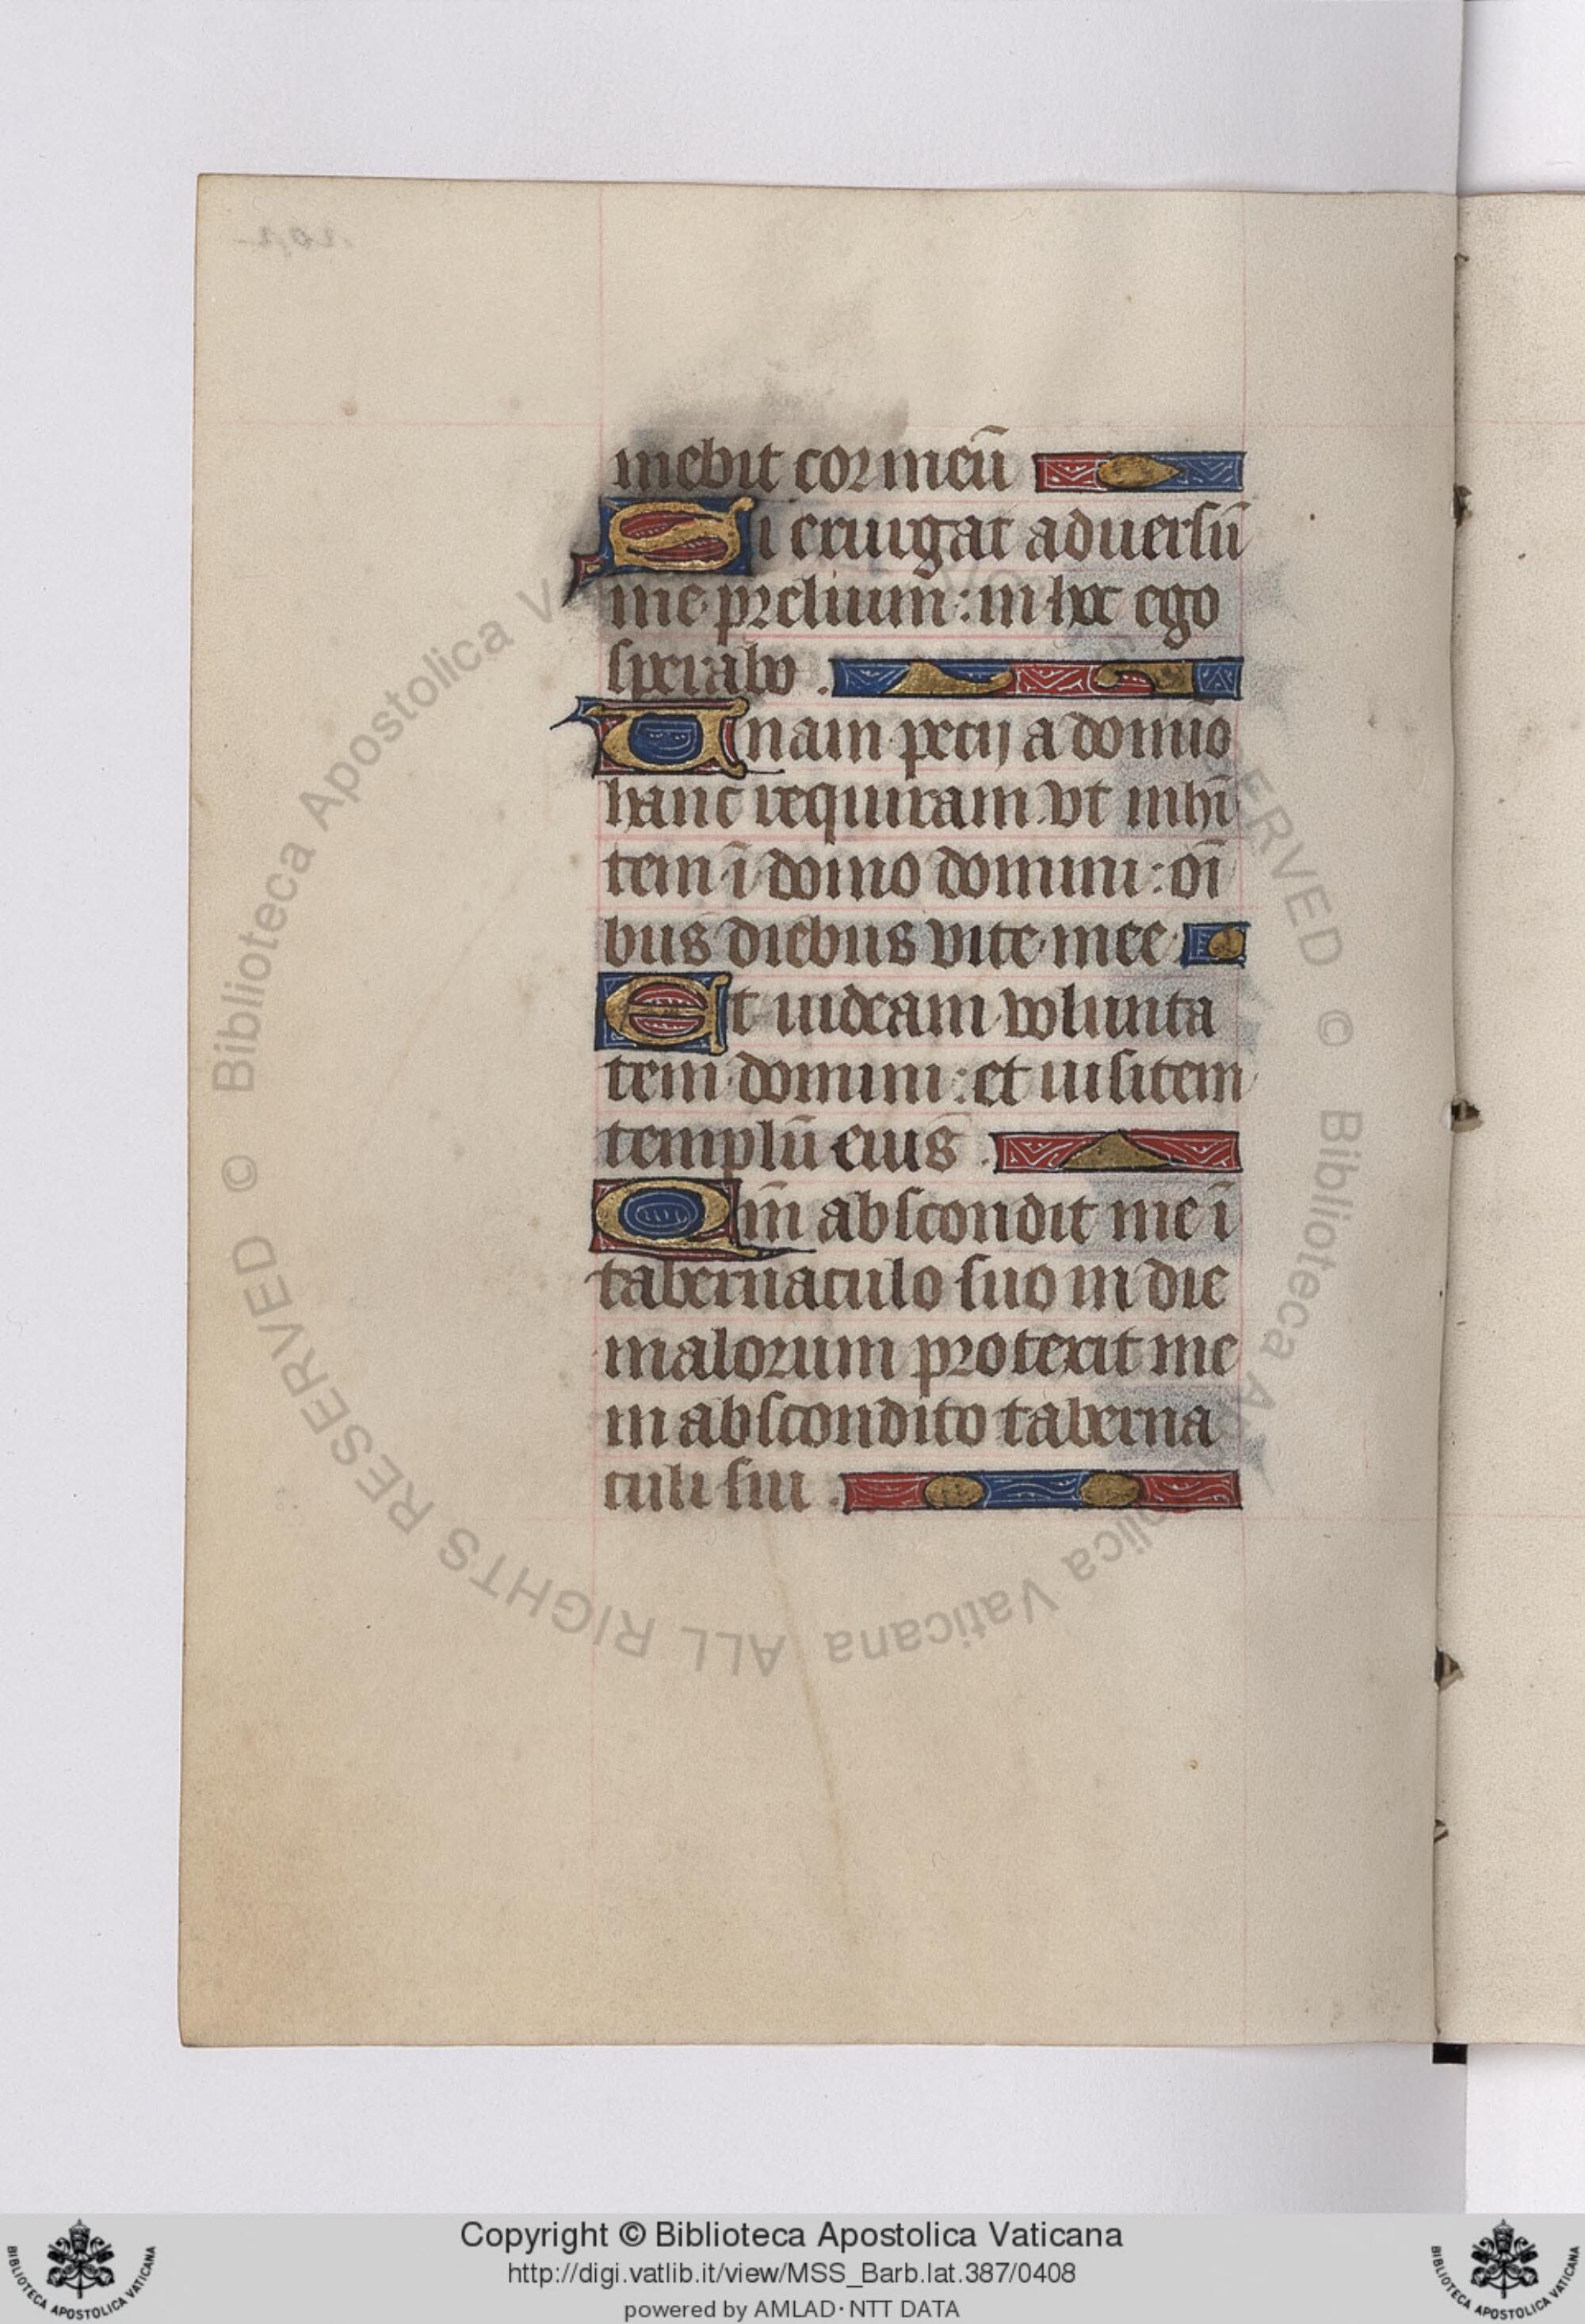 mebit cor meū
Si exurgat aduersū
me prelium: in hoc ego
sperabo.
Unam pecij a domīo
hanc requiram vt inhī
tem ī domo domini: oī
bus diebus vite mee
Et uideam volunta
tem domini: et uisitem
templū eius.
Qm̄ abscondit me ī
tabernaculo suo in die
malorum protexit me
in abscondito taberna
culi sui.
© Biblioteca Apostolica Vaticana ALL RIGHTS RESERVED © Biblioteca Apostolica Vaticana ALL RIGHTS RESERVED
Copyright © Biblioteca Apostolica Vaticana
http://digi.vatlib.it/view/MSS_Barb.lat.387/0408
powered by AMLAD·NTT DATA
BIBLIOTECA APOSTOLICA VATICANA
BIBLIOTECA APOSTOLICA VATICANA